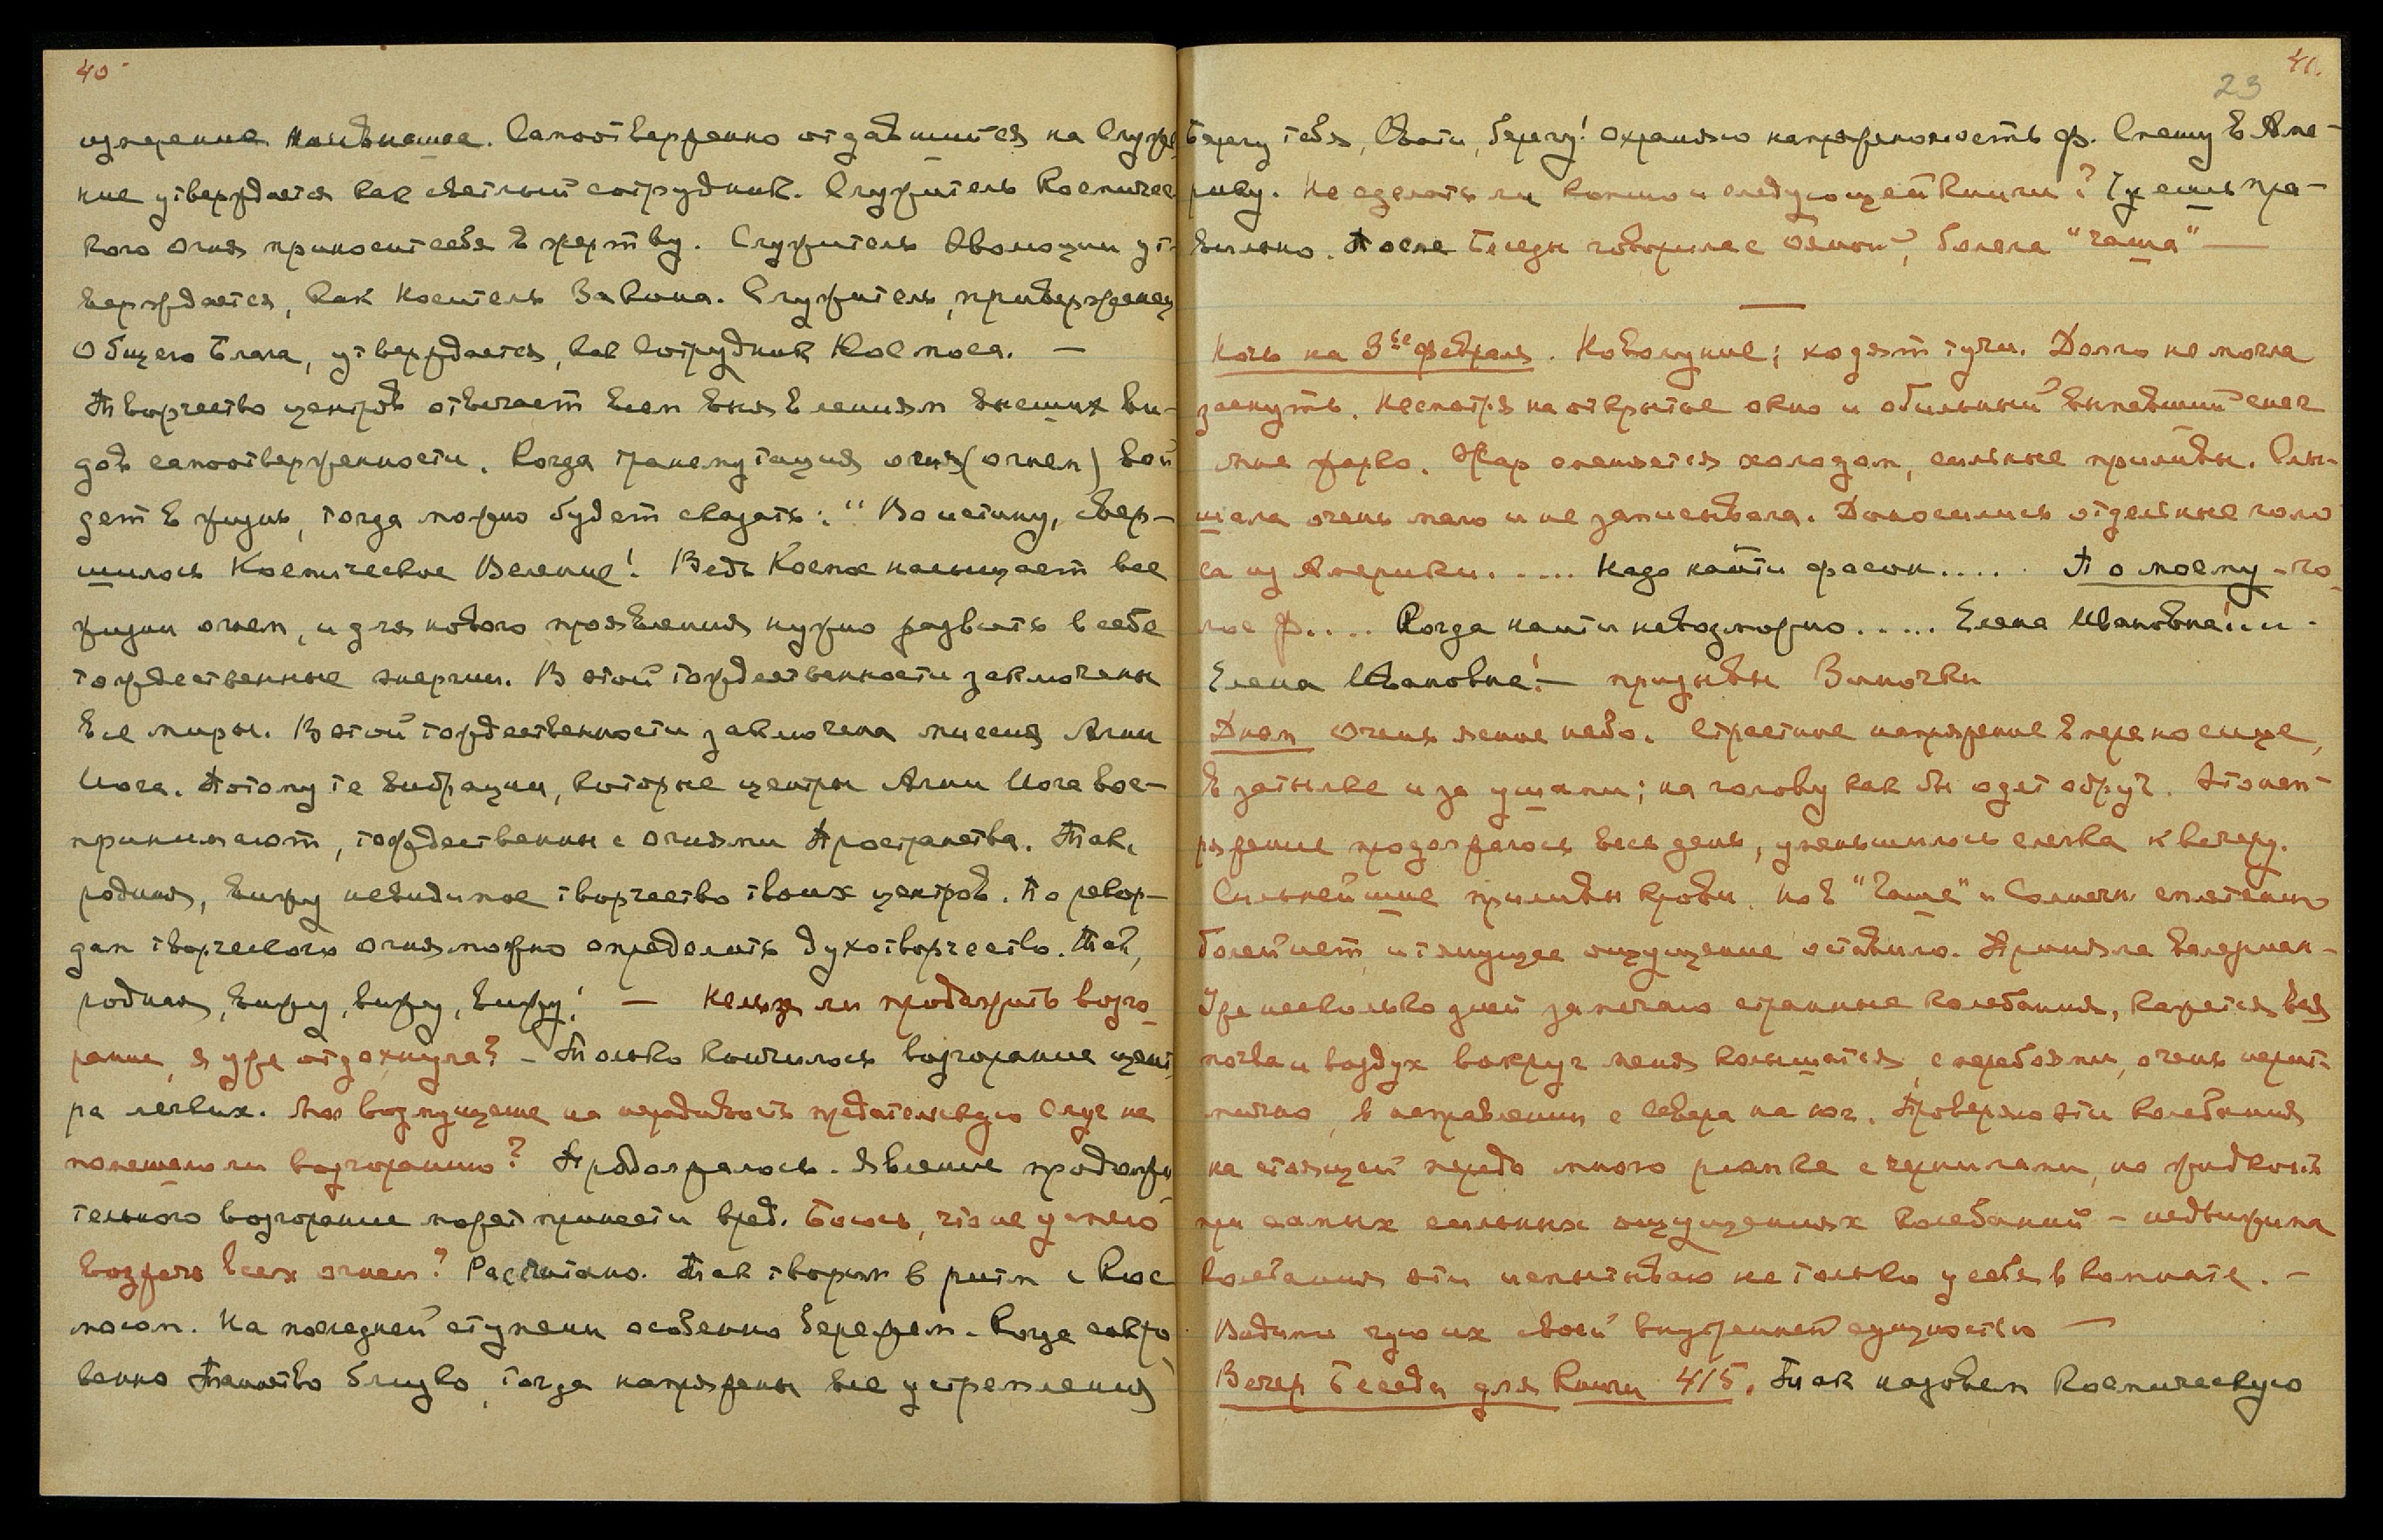 40
измерение наивысшее. Самоотверженно отдавшийся на Служе
ние утверждается как светлый сотрудник. Служитель Космичес
кого Огня приносит себя в жертву. Служитель Эволюции ут-
верждается, как Носитель Закона. Служитель, приверженец
Общего Блага, утверждается, как Сотрудник Космоса. —
Творчество центров отвечает всем выявлениям высших ви-
дов самоотверженности. Когда трансмутация огня (огнем) вой
дет в жизнь, тогда можно будет сказать: "Воистину, свер-
шилось Космическое Веление! Ведь Космос насыщает все
жизни огнем, и для нового проявления нужно развить в себе
тождественные энергии. В этой тождественности заключены
все миры. В этой тождественности заключена миссия Агни
Йога. Потому те вибрации, которые центры Агни Йога вос-
принимают, тождественны с огнями Пространства. Так,
родная, вижу невидимое творчество твоих центров. По рекор-
дам творческого огня можно определить духотворчество. Так,
родная, вижу, вижу, вижу! — Нельзя ли продолжить возго
рание, я уже отдохнула? - Только кончилось возгорание цент
ра легких. Мое возмущение на нерадивость предательскую слуг не
помешало ли возгоранию? Продолжалось. Явление продолжи
тельного возгорание может принести вред. Боюсь, что не успею
возжечь всех огней? Рассчитано. Так творим в ритм с Кос
мосом. На последней ступени особенно бережем. Когда сокро
венно Таинство близко, тогда напряжены все устремления
41.
23
Берегу тебя, Свати, берегу! Охраняю напряженность Ф. Спешу в Аме-
рику. Не сделать ли копию и следующей книги? Судишь пра-
вильно. После Беседы говорила с Ояной, болела "чаша" —
Ночь на 3ье февраля. Новолуние; ходят тучи. Долго не могла
заснуть. Несмотря на открытое окно и обильный выпавший снег
мне жарко. Жар сменяется холодом, сильные приливы. Слы-
шала очень мало и не записывала. Доносились отдельные голо
са из Америки. .... Надо найти фасон .... По моему - го
лос Ф.... Когда найти невозможно ..... Елена Ивановна! и -
Елена Ивановна! — призывы Зиночки
Днем Очень ясное небо. Страстное напряжение в переносице,
в затылке и за ушами; на голову как бы одет обруч. Это нап-
ряжение продолжалось весь день, уменьшилось слегка к вечеру.
Сильнейшие приливы крови. Но в "Чаше" и Солнечн. сплетении
болей нет, и тянущее ощущение оставило. Приняла валериан-
Уже несколько дней замечаю странные колебания, кажется вся
почва и воздух вокруг меня колышатся, с перебоями, очень нерит-
мично, в направлении с Севера на юг. Проверяю эти колебания
на стоящей передо мною рюмке с чернилами, но жидкость
при самых сильных ощущениях колебаний - недвижима
Колебания эти испытываю не только у себя в комнате. -
Видимо чую их своей внутренней сущностью —
Вечер Беседы для Книги 415. Так назовем Космическую